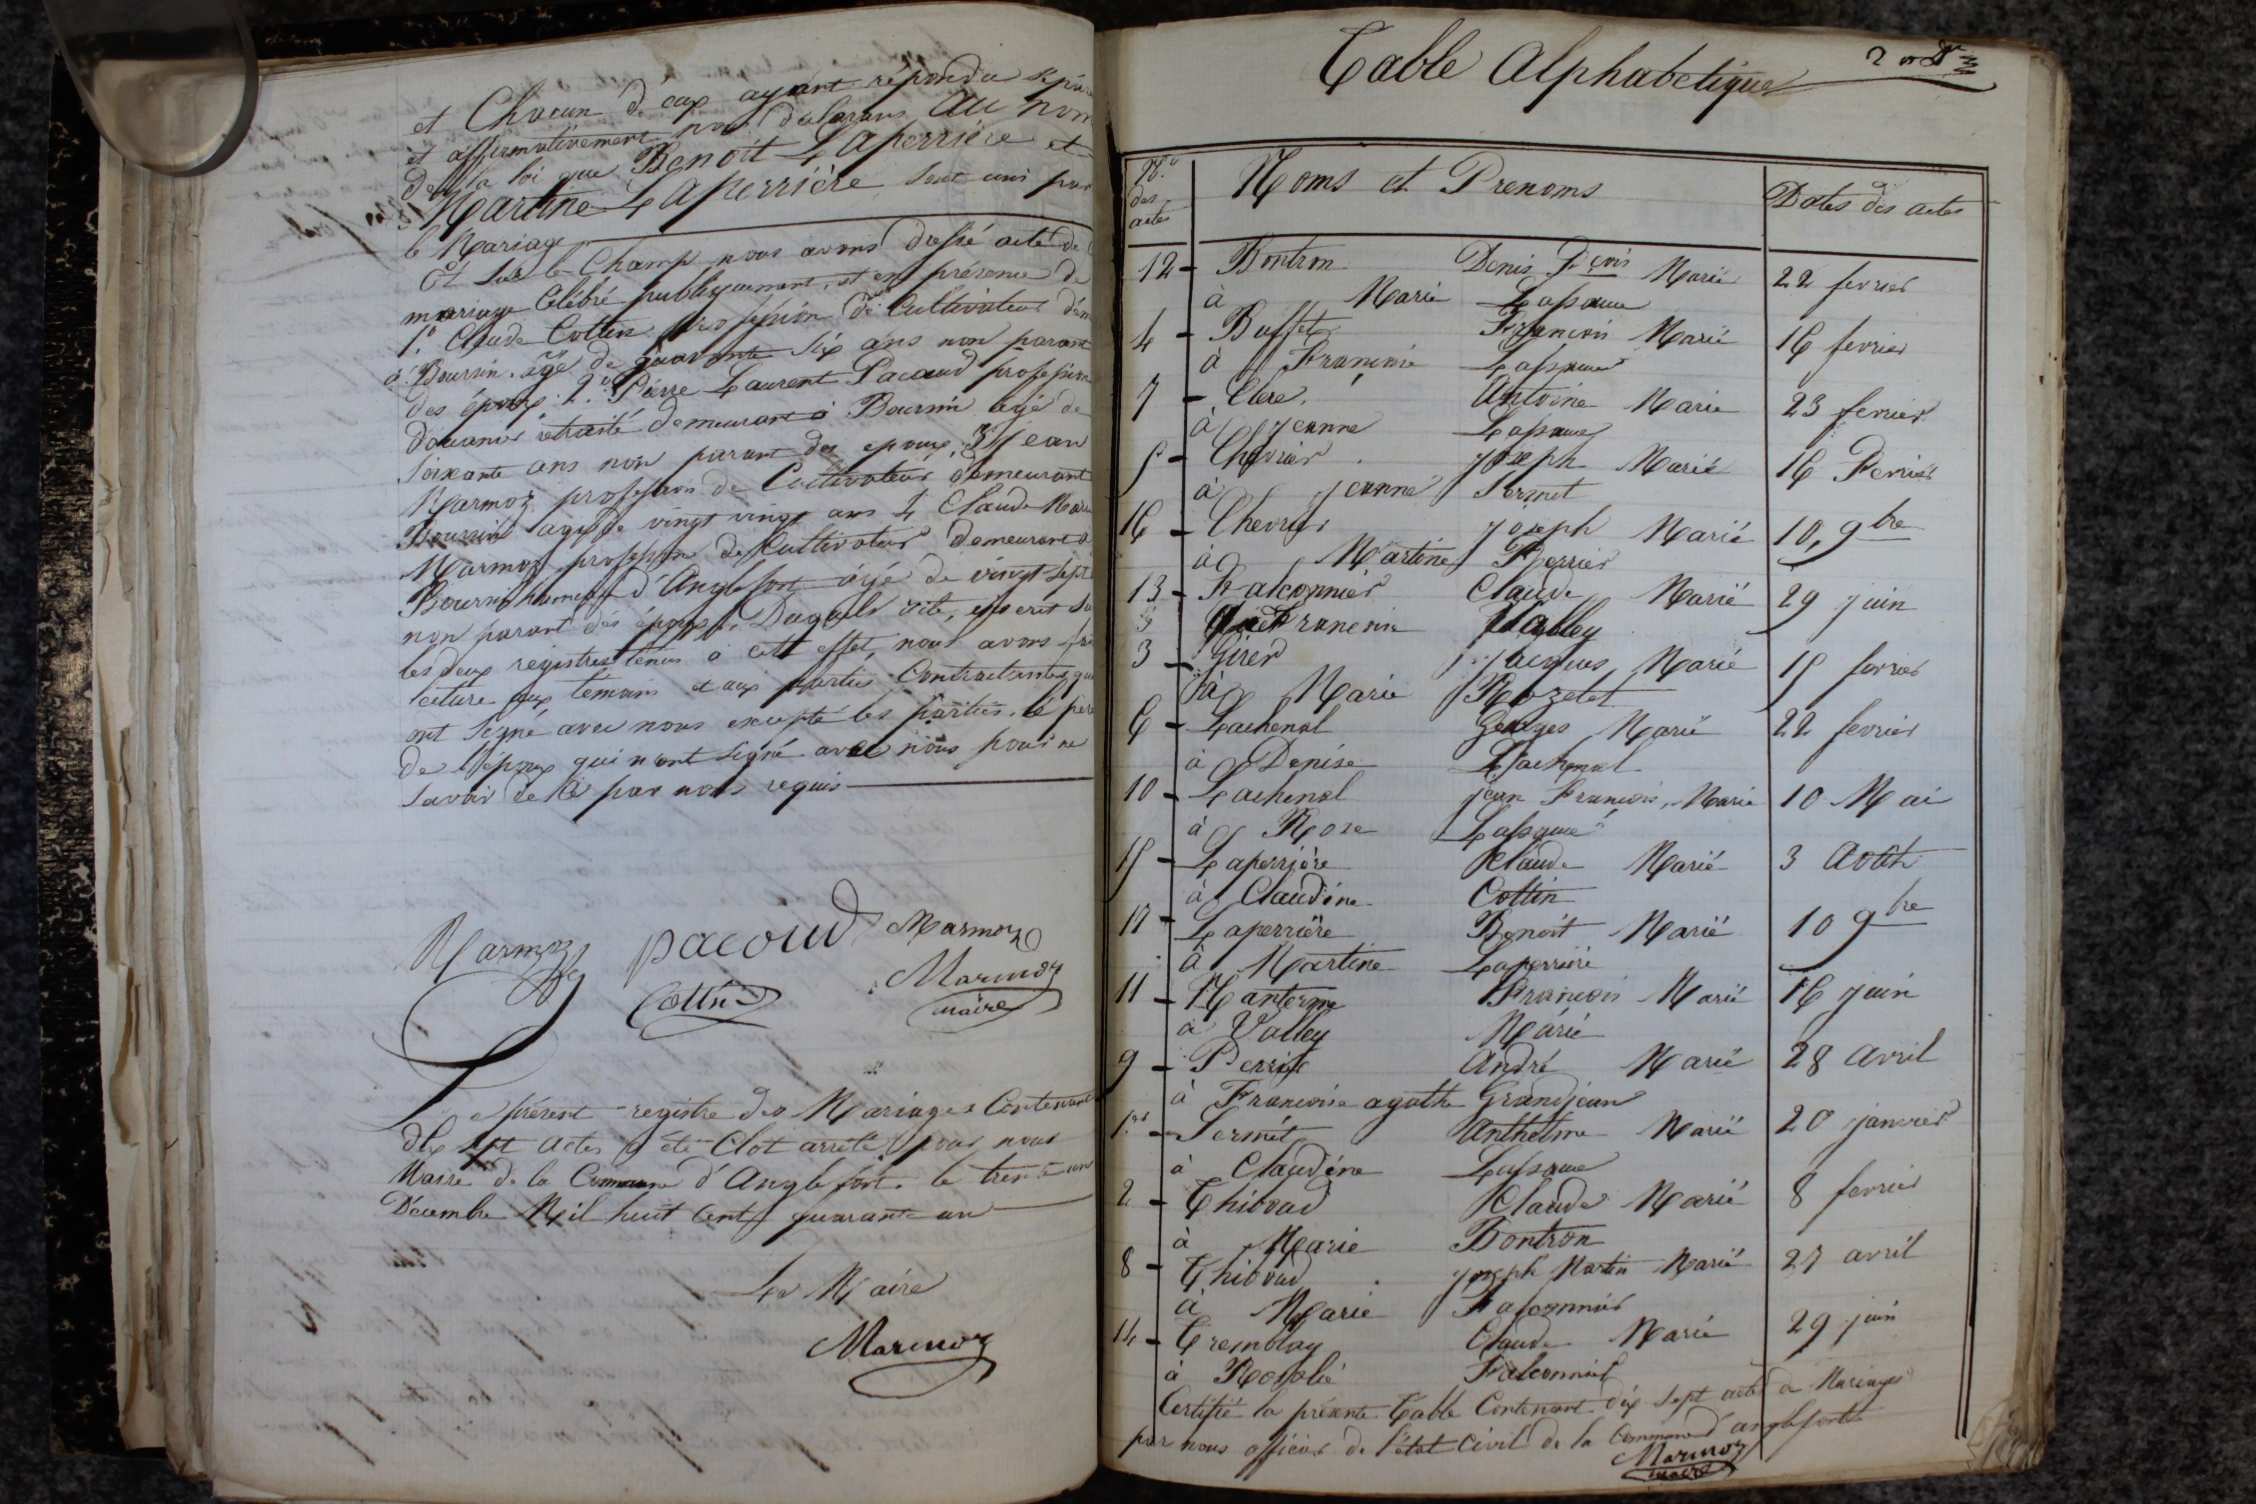 et Chacun d'eux ayant répondu
et affirmativement nous déclarons au nom
de la loi que Benoit Laperrière et
Martine Laperrière sont unis par
le Mariage
Et sur le Champ nous avons dressé acte de
mariage Célébré publiquement, et en présence de
1.º Claude Cottin profession de Cultivateur
à Boursin. agé de quarante six ans non parant
des époux. 2.º Pierre Laurent Pacoud profession
douanier retraité demeurant à Boursin agé de
soixante ans non parant des epoux, 3º Jean
Marmoz profession de Cultivateur demeurant
Boursin agé de vingt ans 4 Claude Marie
Marmoz, profession de Cultivateur demeurant à
hameau d'Anglefort agé de vingt sept
non parant des époux,
les deux registres tenus à cett effet, nous avons
lecture aux témoins et aux parties Contractantes qui
ont signé avec nous excepté les parties, le père
de l'époux qui n'ont signé avec nous pour ne
savoir de ce par nous requis
Marmoz pacoud Marmoz
Cottin Marmoz
maire
Le présent registre des Mariages Contenant
dix sept actes a été Clot arrêté par nous
Maire de la Commune d'Anglefort. le trente un
Décembre Mil huit Cent quarante un
Le Maire
Marmoz
Table Alphabetique
Nº des actes Noms et Prenoms Dates des actes
12 - Bontron Denis Fçois Marié 22 fevrier
à Marie Lassaue
4 - Buffet François Marié 16 fevrier
à Francoise Lassaue
7 - Clere Antoine Marie 23 fevrier
à Jeanne Lassaue
5 - Chevrier Joseph Marié 16 Fevrier
à Jeanne Sermet
16 - Chevrier Joseph Marié 10, 9bre
à Martine Perrier
13 - Falconnier Claude Marié 29 juin
à Francoise Valley
3 - Girer Jacques, Marié 15 fevrier
à Marie Rozetet
6 - Lachenal Georges Marié 22 fevrier
à Denise Lachenal
10 - Lachenal jean François, Marie 10 Mai
à Rose Lassaue
15 - Laperrière Claude Marié 3 Août
à Claudine Cottin
17 - Laperrière Benoit Marié 10 9bre
à Martine Laperrière
11 - Manterne François Marié 16 juin
à Valley Marie
9 - Perrier André Marié 28 avril
à Francoise agathe Grandjean
1.er - Sermet Anthelme Marié 20 janvier
à Claudine Lassaue
2 - Thiboud Claude Marié 8 fevrier
à Marie Bontron
8 - Thiboud joseph Martin Marié 27 avril
à Marie Falconnier
14 - Tremblay Claude Marié 29 juin
à Rosalie Falconnier
Certifié la présente Table Contenant dix sept actes de Mariages
par nous officier de l'état Civil de la Commune d'anglefort
Marmoz
maire